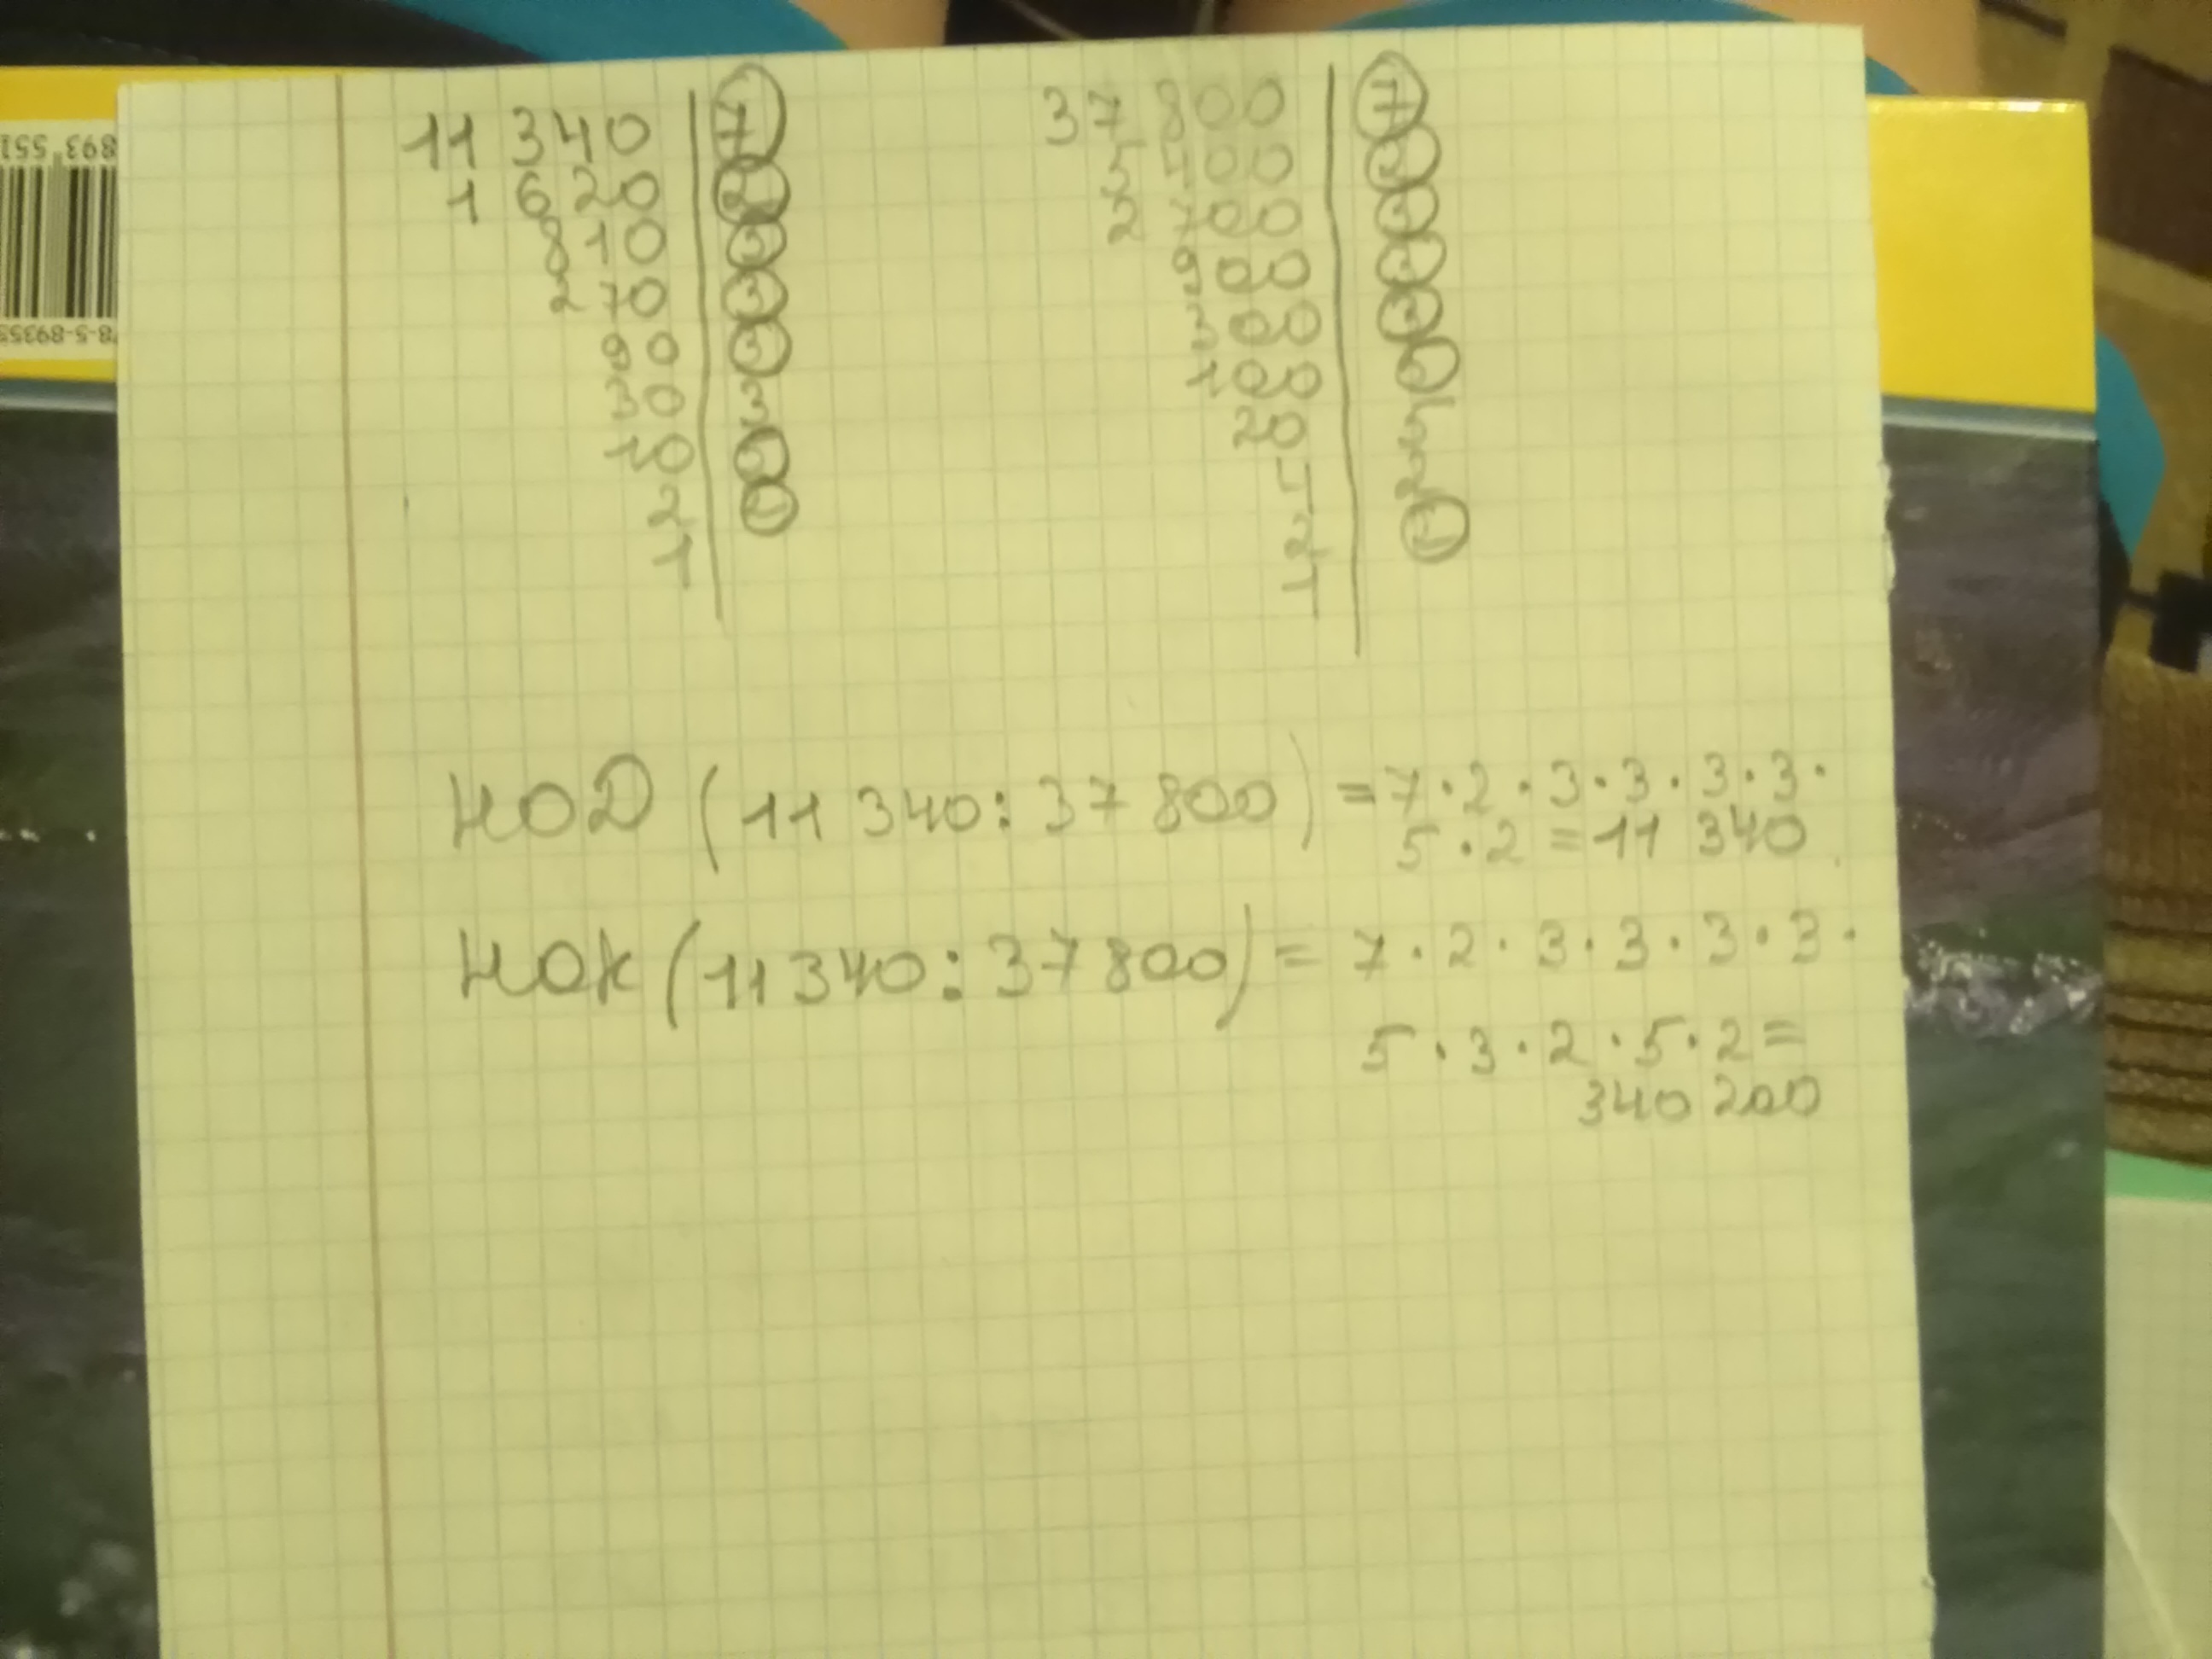 11 340 7
1 620 2
810 3
270 3
90 3
30 3
10 5
2 2
1
37 800 7
5 400 2
2 700 3
900 3
300 3
100 5
20
5
2
1
НОД (11 340 : 37 800) = 7 · 2 · 3 · 3 · 3 · 3 ·
5 · 2 = 11 340
НОК (11 340 : 37 800) = 7 · 2 · 3 · 3 · 3 · 3 ·
5 · 3 · 2 · 5 · 2 =
340 200